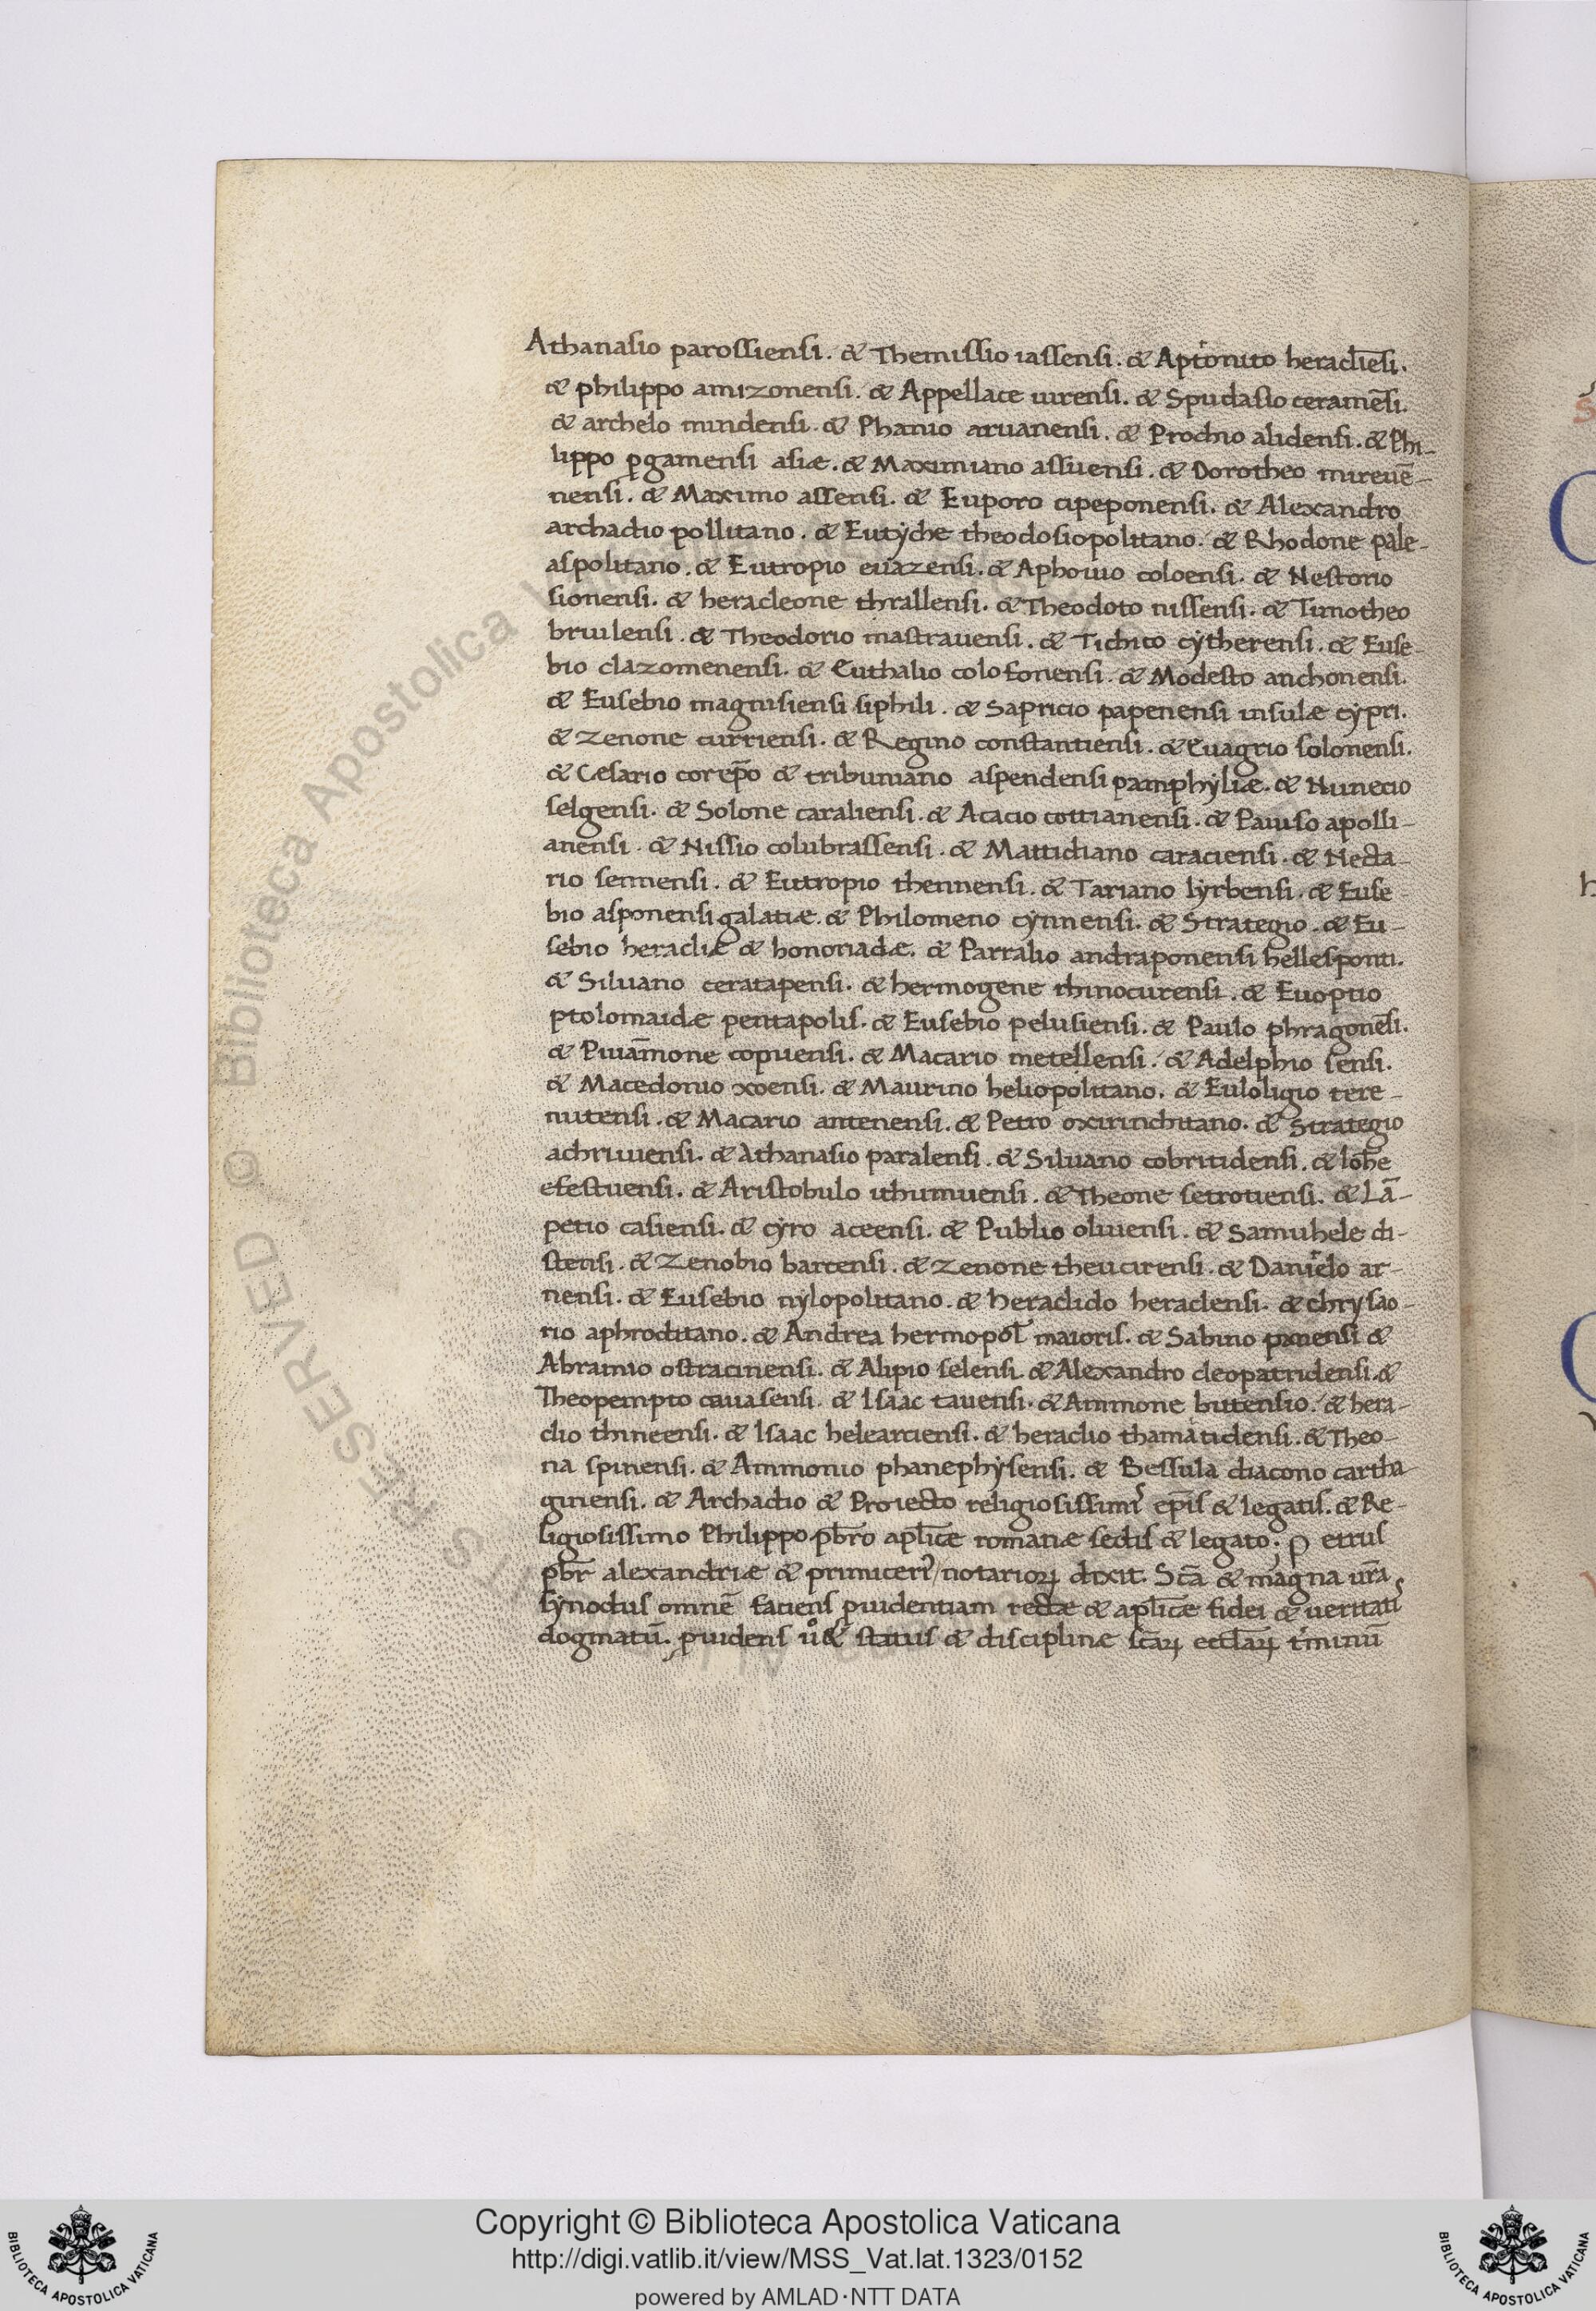 Athanasio parossiensi. & Themissio iassensi. & Aptonito heracliēsi.
& philippo amizonensi. & Appellace iurensi. & Spudasio ceramēsi.
& archelo mindensi. & Phanio aruanensi. & Prochio alidensi. & Phi-
lippo ꝑgamensi asiæ. & Maximiano assuensi. & Dorotheo mireuē-
nensi. & Maximo assensi. & Euporo cipeponensi. & Alexandro
archadio pollitano. & Eutyche theodosiopolitano. & Rhodone pale-
aspolitano. & Eutropio euazensi. & Aphouio coloensi. & Nestorio
sionensi. & heracleone thrallensi. & Theodoto nissensi. & Timotheo
briulensi. & Theodorio mastrauensi. & Tichico cytherensi. & Euse-
bio clazomenensi. & Euthalio colofonensi. & Modesto anchonensi.
& Eusebio magnisiensi siphili. & Sapricio papenensi insulæ cypri.
& Zenone curriensi. & Regino constantiensi. & Euagrio solonensi.
& Cesario corep̄o & tribuniano aspendensi pamphyliæ. & Nunecio
selgensi. & Solone caraliensi. & Acacio cottianensi. & Pauiso apolli-
anensi. & Nissio colubrassensi. & Mattidiano caraciensi. & Necta-
rio sennensi. & Eutropio thennensi. & Tariano lyrbensi. & Euse-
bio asponensi galatiæ. & Philomeno cynnensi. & Strategio. & Eu-
sebio heracliæ & honoriadæ. & Parralio andraponensi hellesponti.
& Siluano ceratapensi. & hermogene rhinocurensi. & Euoptio
ptolomaidæ pentapolis. & Eusebio pelusiensi. & Paulo phragonēsi.
& Piuāmone copuensi. & Macario metellensi. & Adelphio sensi.
& Macedonio xoensi. & Maurino heliopolitano. & Euloligio tere-
nutensi. & Macario antenensi. & Petro oxirinchitano. & Strategio
achriuuensi. & Athanasio paralensi. & Siluano cobritidensi. & Ioh̄e
efestuensi. & Aristobulo ithumuensi. & Theone setrotiensi. & Lā-
petio casiensi. & cyro aceensi. & Publio oliuiensi. & Samuhele di-
stensi. & Zenobio barcensi. & Zenone theucirensi. & Danielo ar-
nensi. & Eusebio nylopolitano. & heraclido heraclensi. & chrysao-
rio aphroditano. & Andrea hermopol̄ maioris. & Sabino panensi &
Abramio ostracinensi. & Alipio selensi. & Alexandro cleopatridensi. &
Theopempto cauasensi. & Isaac tauensi. & Ammone butensio. & hera-
clio thineensi. & Isaac helearciensi. & heraclio thamatidensi. & Theo-
na spinensi. & Ammonio phanephysensi. & Bessula diacono cartha
ginensi. & Archadio & Proiecto religiosissimis ep̄is & legatis. & Re-
ligiosissimo Philippo pb̄ro apl̄ice romanæ sedis & legato. P etrus
pb̄r alexandriæ & primiceri⁹ notarioꝝ dixit. Sc̄a & magna ur̄a
synodus omnē faciens ꝓuidentiam rectæ & apl̄icæ fidei & ueritatis
dogmatū. ꝓuidens uͦ & status & disciplinæ sc̄aꝝ eccl̄aꝝ t̉minū
Copyright © Biblioteca Apostolica Vaticana
http://digi.vatlib.it/view/MSS_Vat.lat.1323/0152
powered by AMLAD·NTT DATA